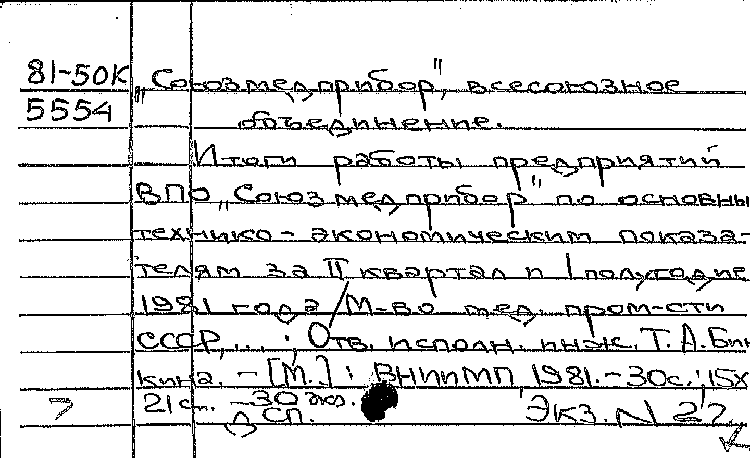 81-50К „Союзмедприбор", всесоюзное
5554 объединение.
Итоги работы предприятий
ВПО „Союзмедприбор" по основны
технико-экономическим показа-
телям за II квартал и I полугодие
1981 года / М-во мед. пром-сти
СССР,...; Отв. исполн. инж. Т.А.Бин
кина. - [М.] : ВНИИМП 1981.-30с.;15х
21 см. -30 экз.
сп. Экз. N 27